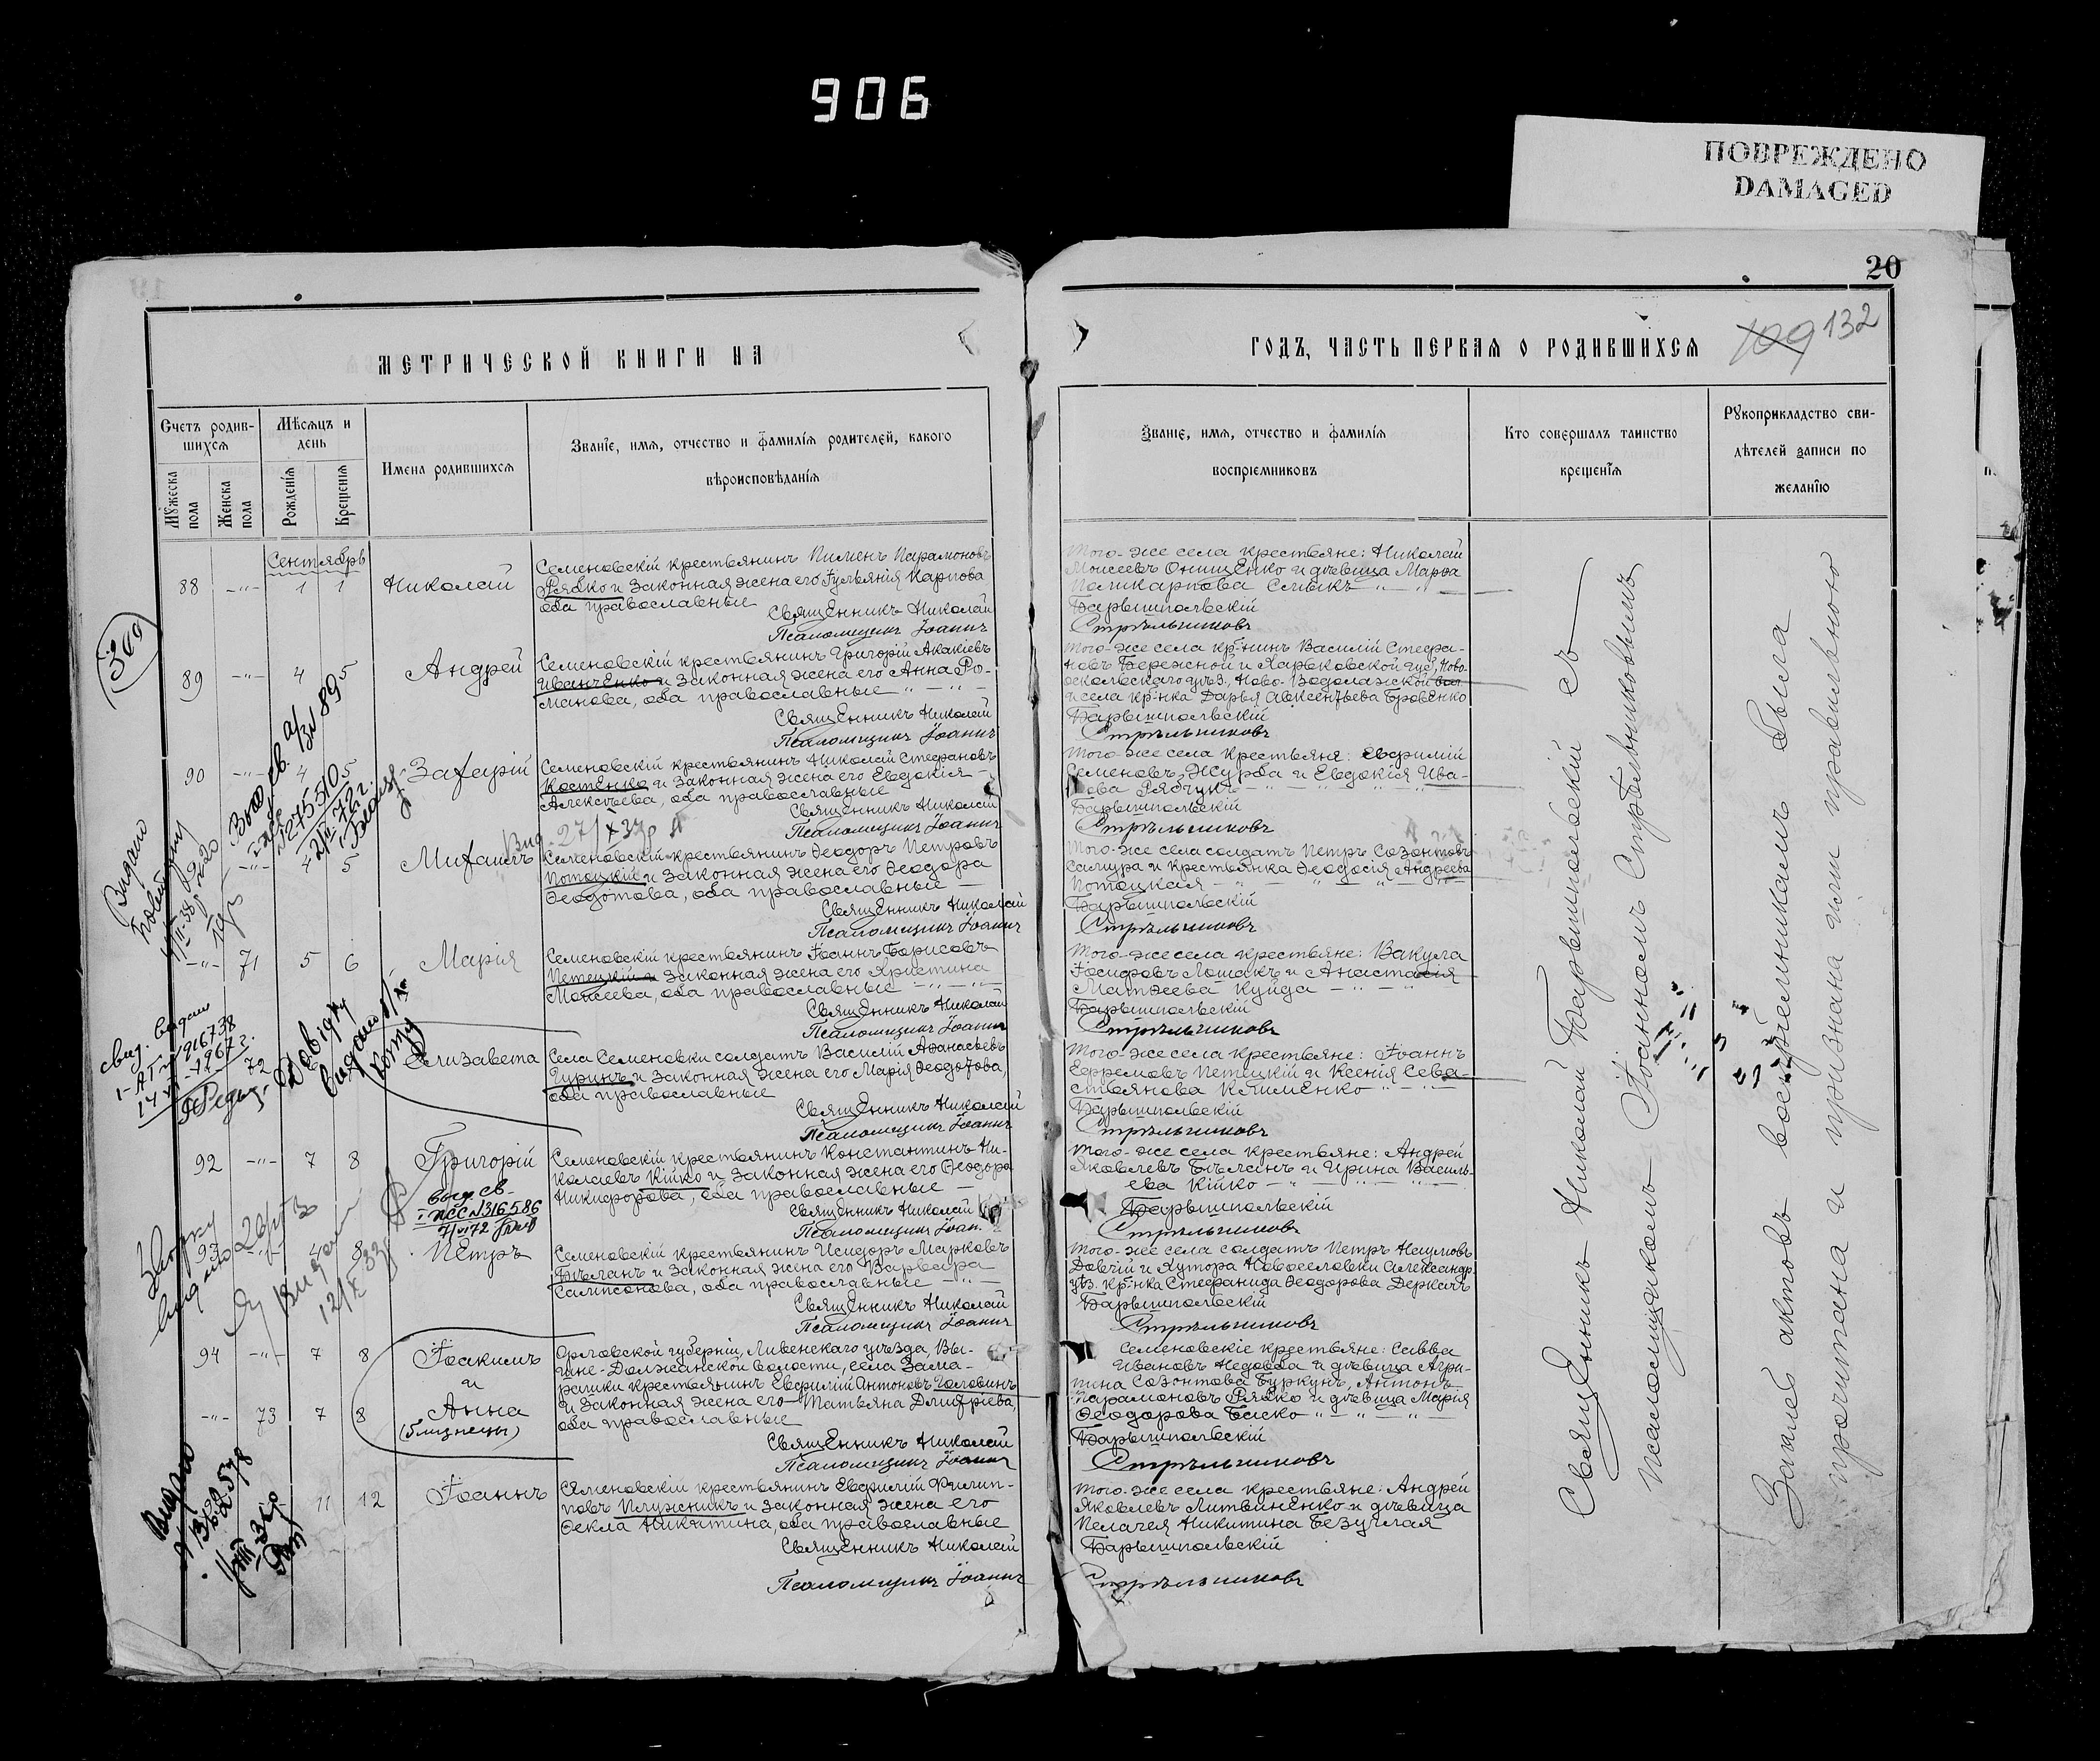 906
ПОВРЕЖДЕНО
DAMAGED
20
109 132
МЕТРИЧЕСКОЙ КНИГИ НА
ГОДЪ, ЧАСТЬ ПЕРВАЯ О РОДИВШИХСЯ
Счетъ родив-
шихся
Мѣсяцъ и
день
Мужеска
пола
Женска
пола
Рожденія
Крещенія
Имена родившихся
Званіе, имя, отчество и фамилія родителей, какого
вѣроисповѣданія
Званіе, имя, отчество и фамилія
воспріемниковъ
Кто совершалъ таинство
крещенія
Рукоприкладство сви-
дѣтелей записи по
желанію
Сентябрь
88 -"- 1 1 Николай
Семеновскій крестьянинъ Пименъ Парамоновъ
Рябко и законная жена его Іульянія Карпова
оба православные
Священникъ Николай
Псаломщикъ Іоаннъ
Того-же села крестьяне: Николай
Моисеевъ Онищенко и дѣвица Марѳа
Поликарпова Слыкъ
Барышпольскій
Стрѣльниковъ
89 -"- 4 5 Андрей
Семеновскій крестьянинъ Григорій Акакіевъ
Иванченко и законная жена его Анна Ро-
манова, оба православные
Священникъ Николай
Псаломщикъ Іоаннъ
Того-же села кр-нинъ Василій Стефа-
новъ Бережной и Харьковской губ., Ново-
оскольскаго уѣз., Ново-Водолажской вол
и села кр-нка Дарья Авксентьева Бровенко
Барышпольскій
Стрѣльниковъ
90 -"- 4 5 Захарій
Семеновскій крестьянинъ Николай Стефановъ
Костенко и законная жена его Евдокія
Алексѣева, оба православные
Священникъ Николай
Псаломщикъ Іоаннъ
Того-же села крестьяне: Евфимій
Семеновъ Журба и Евдокія Ива-
нова Рябчукъ
Барышпольскій
Стрѣльниковъ
-"- 4 5 Михаилъ
Семеновскій крестьянинъ Ѳеодоръ Петровъ
Потоцкій и законная жена его Ѳеодора
Ѳеодотова, оба православные
Священникъ Николай
Псаломщикъ Іоаннъ
Того-же села солдатъ Петръ Созонтовъ
Сацура и крестьянка Ѳеодосія Андреева
Потоцкая
Барышпольскій
Стрѣльниковъ
-"- 71 5 6 Марія
Семеновскій крестьянинъ Іоаннъ Борисовъ
Петецкій и законная жена его Христина
Моисеева, оба православные
Священникъ Николай
Псаломщикъ Іоаннъ
Того-же села крестьяне: Вакула
Іосифовъ Лошакъ и Анастасія
Матѳеева Куйда
Барышпольскій
Стрѣльниковъ
72 Елизавета
Села Семеновки солдатъ Василій Аѳанасьевъ
Гуринъ и законная жена его Марія Ѳеодотова,
оба православные
Священникъ Николай
Псаломщикъ Іоаннъ
Того-же села крестьяне: Іоаннъ
Ефремовъ Петецкій и Ксенія Сева-
стьянова Клименко
Барышпольскій
Стрѣльниковъ
92 -"- 7 8 Григорій
Семеновскій крестьянинъ Константинъ Ни-
колаевъ Кійко и законная жена его Ѳеодора
Никифорова, оба православные
Священникъ Николай
Псаломщикъ Іоан.
Того-же села крестьяне: Андрей
Яковлевъ Бѣланъ и Ирина Василь-
ева Кійко
Барышпольскій
Стрѣльниковъ
93 8 Петръ
Семеновскій крестьянинъ Исидоръ Марковъ
Бѣланъ и законная жена его Варвара
Сампсонова, оба православные
Священникъ Николай
Псаломщикъ Іоаннъ
Того-же села солдатъ Петръ Наумовъ
Довгій и хутора Новоселовки Александр.
уѣз. кр-нка Стефанида Ѳеодорова Деркачъ
Барышпольскій
Стрѣльниковъ
94 -"- 7 8 Іоакимъ
и
-"- 73 7 8 Анна
(близнецы)
Орловской губерніи, Ливенскаго уѣзда, Вы-
шне-Должанской волости, села
крестьянинъ Евфимій Антоновъ Головинъ
и законная жена его Татьяна Дмитріева,
оба православные
Священникъ Николай
Псаломщикъ Іоаннъ
Семеновскіе крестьяне: Савва
Ивановъ Недовба и дѣвица Агри-
пина Созонтова Буркунъ, Антонъ
Парамоновъ Рябко и дѣвица Марія
Ѳеодорова Баско
Барышпольскій
Стрѣльниковъ
11 12 Іоаннъ
Семеновскій крестьянинъ Евфимій Филип-
повъ Плужникъ и законная жена его
Ѳекла Никитина, оба православные
Священникъ Николай
Псаломщикъ Іоаннъ
Того-же села крестьяне: Андрей
Яковлевъ Литвиненко и дѣвица
Пелагея Никитина Безуглая
Барышпольскій
Стрѣльниковъ
Священникъ Николай Барышпольскій съ
псаломщикомъ Іоанномъ Стрѣльниковымъ
Запись актовъ воспріемникамъ была
прочитана и признана ими правильною